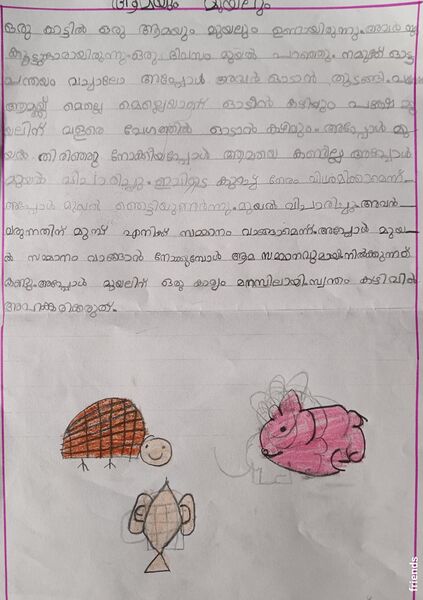 ആമയും മുയലും
ഒരു കാട്ടിൽ ഒരു ആമയും മുയലും ഉണ്ടായിരുന്നു. അവർ
കൂട്ടുകാരായിരുന്നു. ഒരു ദിവസം മുയൽ പറഞ്ഞു. നമുക്ക് ഓട്ട
പന്തയം വച്ചാലോ അപ്പോൾ അവർ ഓടാൻ തുടങ്ങി.
ആമയ്ക്ക് മെല്ലെ മെല്ലെയാണ് ഓടാൻ കഴിയും പക്ഷേ മു
യലിന് വളരെ വേഗത്തിൽ ഓടാൻ കഴിയും. അപ്പോൾ മു
യൽ തിരിഞ്ഞു നോക്കിയപ്പോൾ ആമയെ കണ്ടില്ല അപ്പോൾ
മുയൽ വിചാരിച്ചു. ഇവിടുടെ കുറച്ച് നേരം വിശ്രമിക്കാമെന്ന്
അപ്പോൾ മുയൽ ഞെട്ടിയുണർന്നു. മുയൽ വിചാരിച്ചു. അവർ
വരുന്നതിന് മുമ്പ് എനിക്ക് സമ്മാനം വാങ്ങാമെന്ന്. അപ്പോൾ മുയ
ൽ സമ്മാനം വാങ്ങാൻ നോക്കുമ്പോൾ ആമ സമ്മാനവുമായി നിൽക്കുന്നത്
കണ്ടു. അപ്പോൾ മുയലിന് ഒരു കാര്യം മനസ്സിലായി. സ്വന്തം കഴിവിൽ
അഹങ്കരിക്കരുത്.
friends